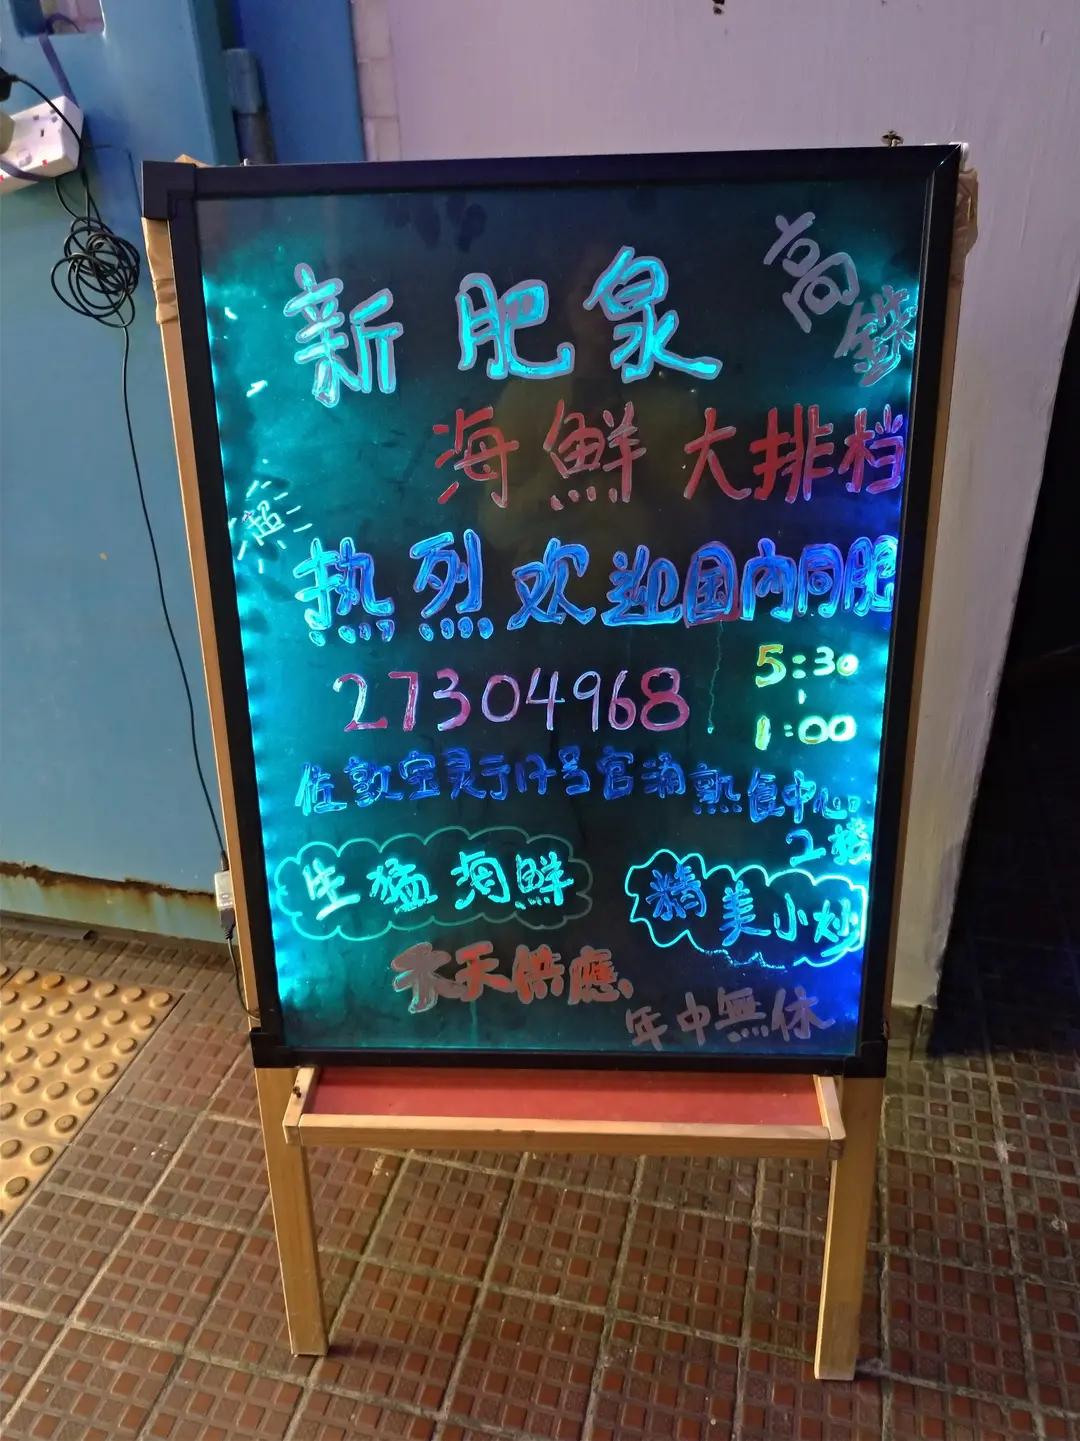 新肥泉
高鐵
海鮮大排档
超
热烈欢迎国内同胞
27304968
5:30
1:00
佐敦宝灵 17号官涌熟食中心
2楼
生猛海鲜
精美小炒
天供應
年中無休